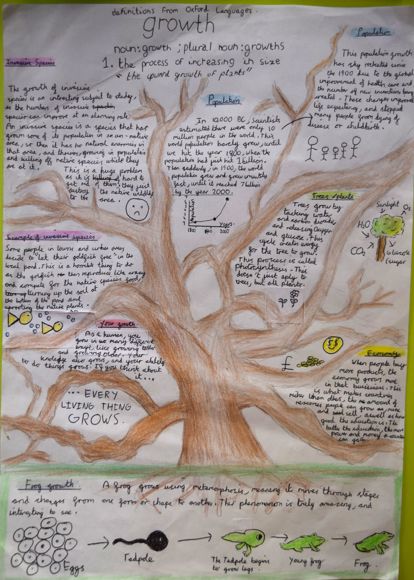 definitions from Oxford Languages.
growth
noun: growth ; plural noun: growths
1. the process of increasing in size
"the upward growth of plants"
Invasive Species
The growth of invasive
species is an interesting subject to study,
as the number of invasive
species can improve at an alarming rate.
An invasive species is a species that has
grown some of its population in a non-native
area, so then it has no natural enemies in
that area, and therefore growing in population
and killing off native species, while they
are at it.
This is a huge problem
as it is hard to
get rid of them; they just
destroy the wildlife
in the area.
Population
In 10000 BC, Scientists
estimated there were only 10
million people in the world. This
world population barely grew, until
we hit the year 1800, when the
population had just hit 1 billion.
Then suddenly, in 1900, the world
population grew and grew ultimately
fast, until it reached 7 billion
by the year 2000.
Years
Population
This population growth
has sky rocketed since
the 1900 due to the global
improvement of health care and
the number of new inventions being
created. These changes improved
life expectancy, and stopped
many people from dying of
disease or childbirth.
Trees/plants
Trees grow by
tracking water
and carbon dioxide,
and releasing Oxygen
and glucose. This
cycle creates energy
for the tree to grow.
This process is called
photosynthesis. This
doesn't just apply to
trees, but all plants.
Sunlight
O₂
H₂O
CO₂
Glucose
(sugar
Example of invasive species
Some people in towns and urban areas
decide to let their goldfish 'free' in the
local pond. This is a horrible thing to do
as the goldfish can then reproduce like crazy
and compete for the native species food,
turning up the soil at
the bottom of the pond and
uprooting the native plants.
Your growth
As a human, you
grow in so many different
ways, like growing taller
and growing older. Your
knowledge also grows, and your ability
to do things grows. If you think about
it...
... EVERY
LIVING THING
GROWS.
£
$
Economy
When people buy
more products, the
economy grows more
in that business. This
is what makes countries
richer than others, the amount of
resources people can grow or mine
and then sell, as well as how
good the education is. The
better the education, the more
power and money a country
can gain.
Frog growth
A frog grows using metamorphosis, meaning it moves through stages
and changes from one form or shape to another. This phenomenon is truly amazing, and
interesting to see.
Eggs
Tadpole
The Tadpole begins
to grow legs
Young frog
Frog.